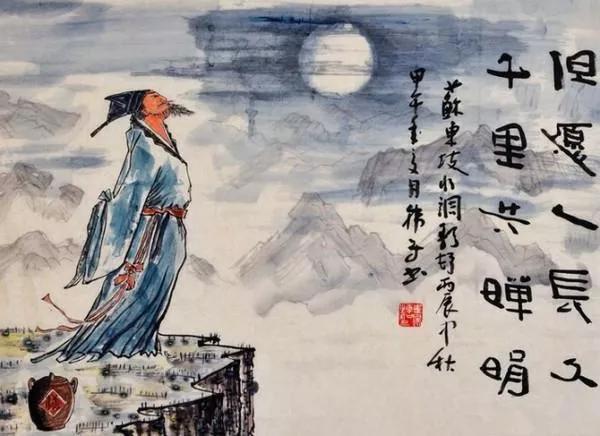 但愿人長久
千里共嬋娟
蘇東坡水調歌頭丙辰中秋
甲午